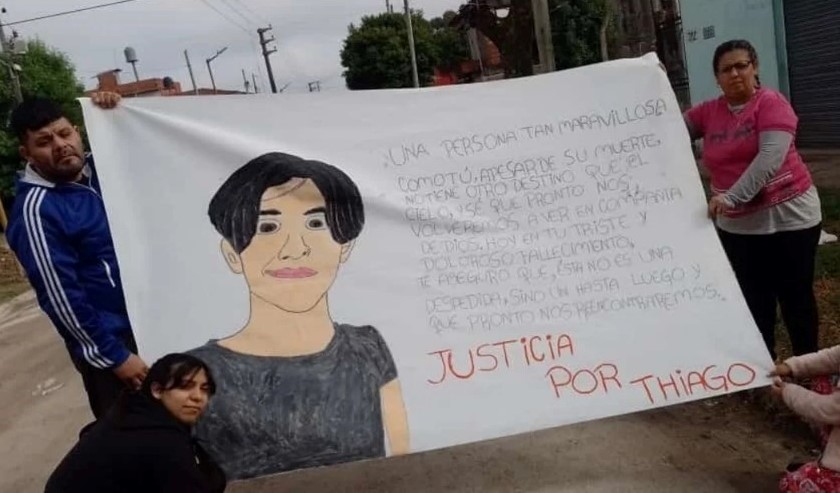 UNA PERSONA TAN MARAVILLOSA
COMO TÚ, APESAR DE SU MUERTE,
NO TIENE OTRO DESTINO QUE EL
CIELO, Y SÉ QUE PRONTO NOS
VOLVEREMOS A VER EN COMPAÑIA
DE DIOS. HOY EN TU TRISTE Y
DOLOROSO FALLECIMIENTO,
TE ASEGURO QUE, ÉSTA NO ES UNA
DESPEDIDA, SINO UN HASTA LUEGO Y
QUE PRONTO NOS REENCONTRAREMOS.
JUSTICIA
POR THIAGO